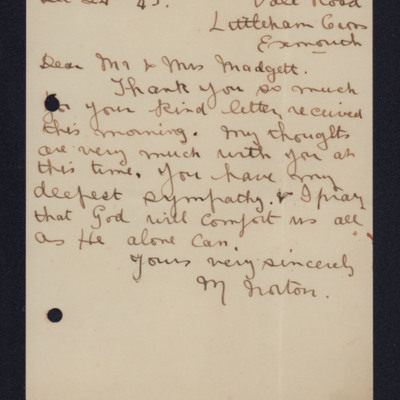 43. Vale Road
Littleham Cross
Exmouth
Dear Mr & Mrs Madgett.
Thank you so much
for your kind letter, received
this morning. My thoughts
are very much with you at
this time. You have my
deepest sympathy. & I pray
that God will comfort us all
as He alone can.
Yours very sincerely
M Norton.